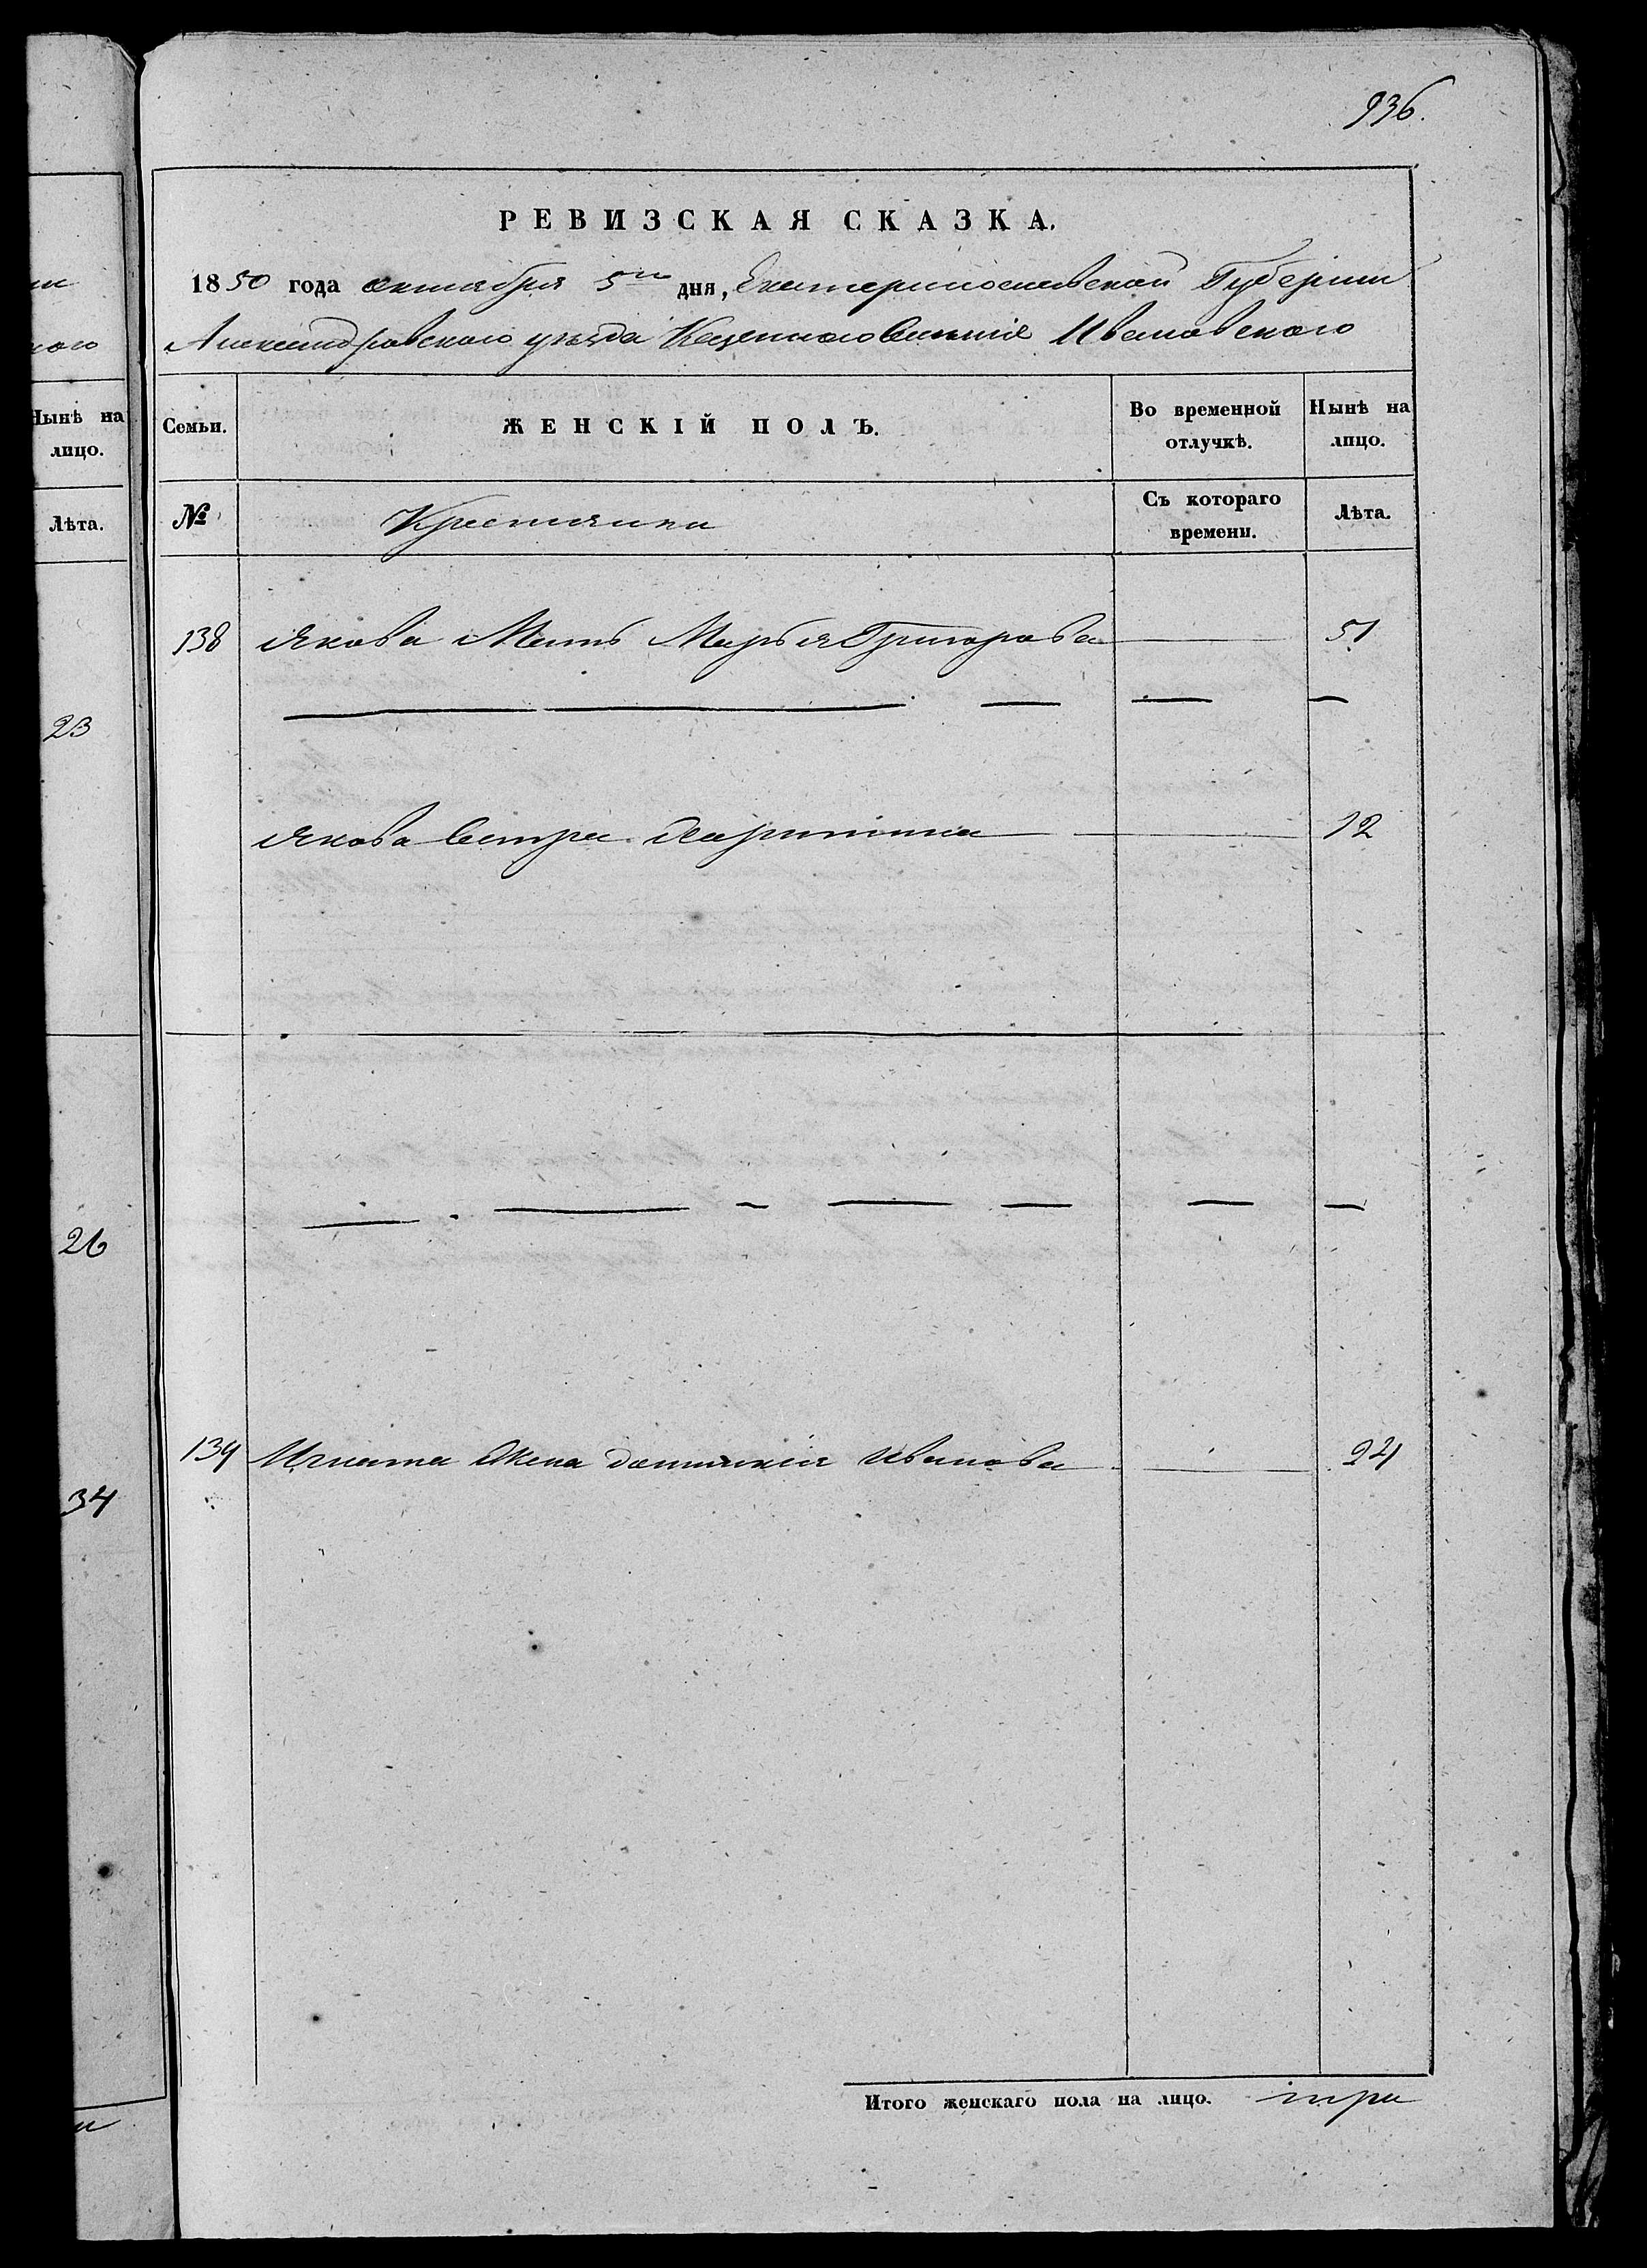 936.
РЕВИЗСКАЯ СКАЗКА.
1850 года октября 5го дня, Екатеринославской Губернии
Александровского уезда Казенного Селения Ивановского
Нынѣ на лицо.
Лѣта.
23
26
34
Семьи.
ЖЕНСКІЙ ПОЛЪ.
Во временной отлучкѣ.
Нынѣ на лицо.
№
Крестьянка
Съ котораго времени.
Лѣта.
138 Якова Мать Марья Григорова 51
Якова Сестра 12
139 Игната Жена Домникія Иванова 24
Итого женскаго пола на лицо. три